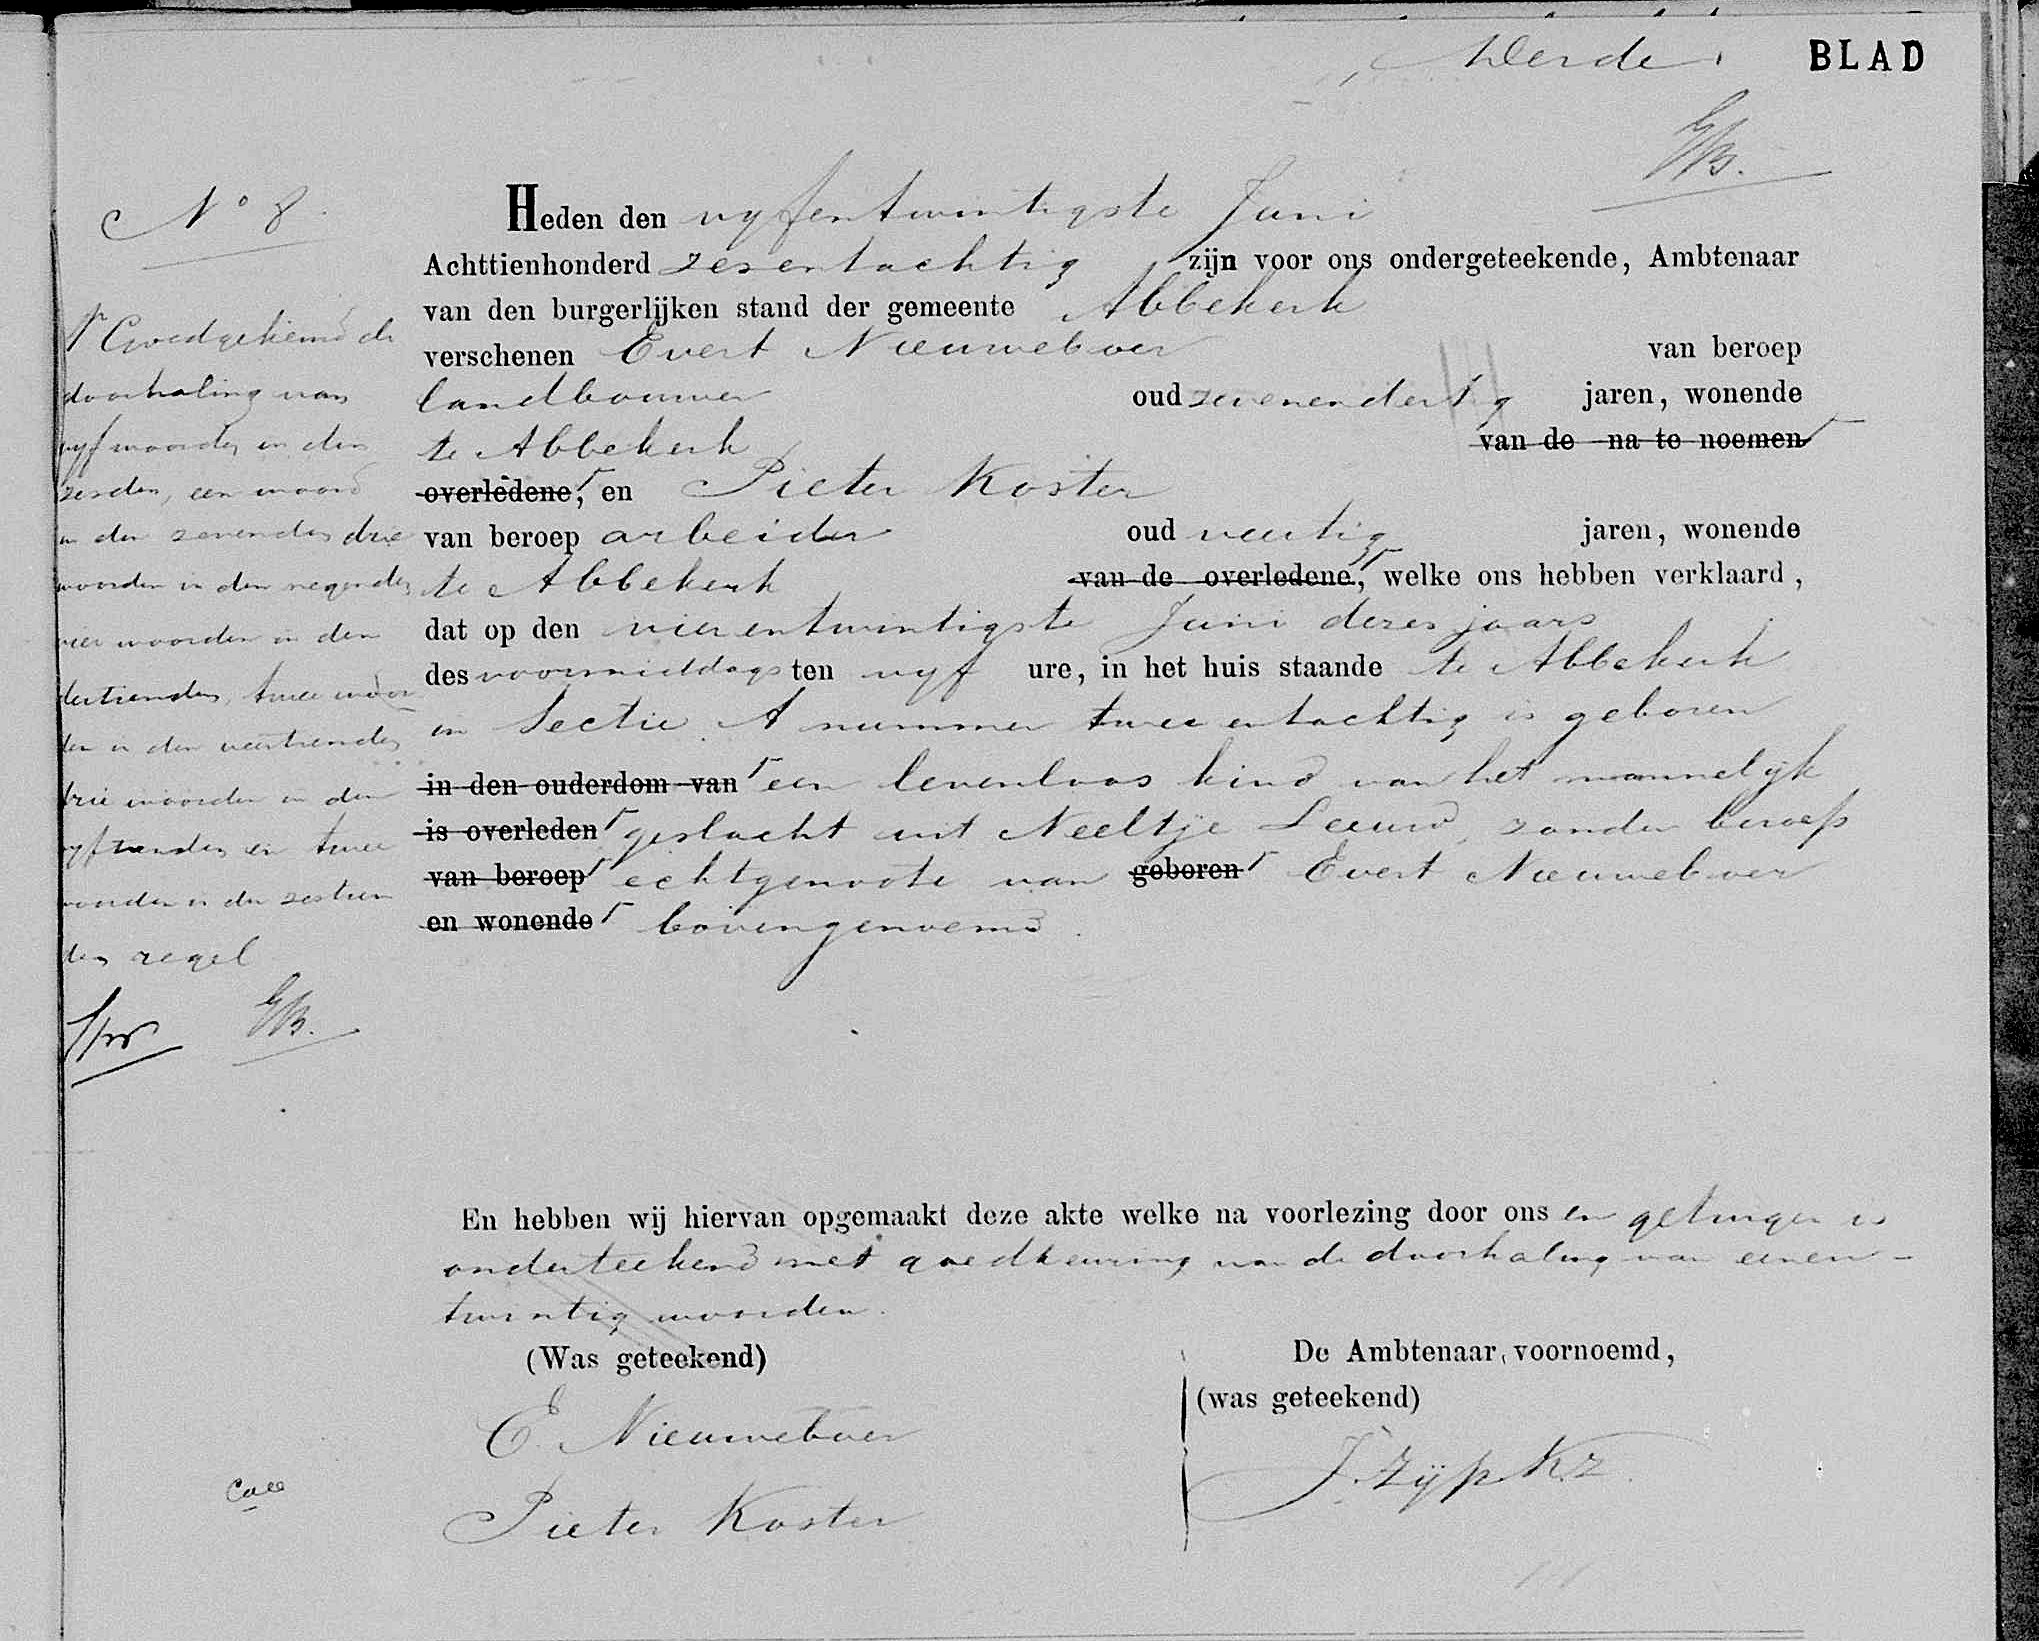 Derde BLAD
GB.
N° 8.
Heden den vyfentwintigste Juni
Achttienhonderd zesentachtig zijn voor ons ondergeteekende, Ambtenaar
van den burgerlijken stand der gemeente Abbekerk
verschenen Evert Nieuweboer van beroep
landbouwer oud zevenendertig jaren, wonende
te Abbekerk van de na te noemen
overledene, en Pieter Koster
van beroep arbeider oud veertig jaren, wonende
te Abbekerk van de overledene, welke ons hebben verklaard,
dat op den vierentwintigste Juni dezes jaars
des voormiddags ten vyf ure, in het huis staande te Abbekerk
in Sectie A nummer twee entachtig is geboren
in den ouderdom van een levenloos kind van het mannelijk
is overleden geslacht uit Neeltje Leeuw, zonder beroep
van beroep echtgenoote van geboren Evert Nieuweboer
en wonende bovengenoemd.
Goedgekeurd de
doorhaling van
vyf woorden in den
zesden, een woord
in den zevenden drie
woorden in den negenden
vier woorden in den
dertienden, twee woor
den in den veertienden
drie woorden in den
vyftienden en twee
woorden in den zestien
den regel
GB.
En hebben wij hiervan opgemaakt deze akte welke na voorlezing door ons en getuigen is
onderteekend met goedkeuring van de doorhaling van eenen-
twintig woorden.
(Was geteekend) De Ambtenaar voornoemd,
(was geteekend)
E. Nieuweboer
J. Zijp Kz.
Pieter Koster